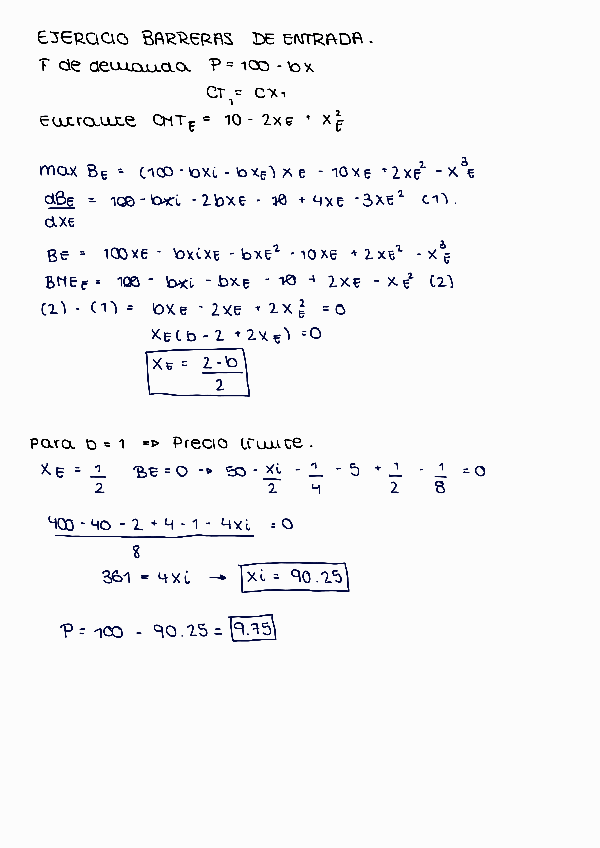 EJERCICIO BARRERAS DE ENTRADA.
F de demanda P = 100 - bx
CT₁ = cx₁
Entrante CMT_E = 10 - 2x_E + x_E²
max B_E = (100 - bxi - bx_E) x_E - 10x_E + 2x_E² - x_E³
dB_E/dx_E = 100 - bxi - 2bx_E - 10 + 4x_E - 3x_E² (1).
B_E = 100x_E - bxix_E - bx_E² - 10x_E + 2x_E² - x_E³
BME_E = 100 - bxi - bx_E - 10 + 2x_E - x_E² (2)
(2) - (1) = bx_E - 2x_E + 2x_E² = 0
x_E (b - 2 + 2x_E) = 0
x_E = (2 - b)/2
Para b = 1 => Precio límite.
x_E = 1/2 B_E = 0 → 50 - xi/2 - 1/4 - 5 + 1/2 - 1/8 = 0
(400 - 40 - 2 + 4 - 1 - 4xi)/8 = 0
361 = 4xi → xi = 90.25
P = 100 - 90.25 = 9.75